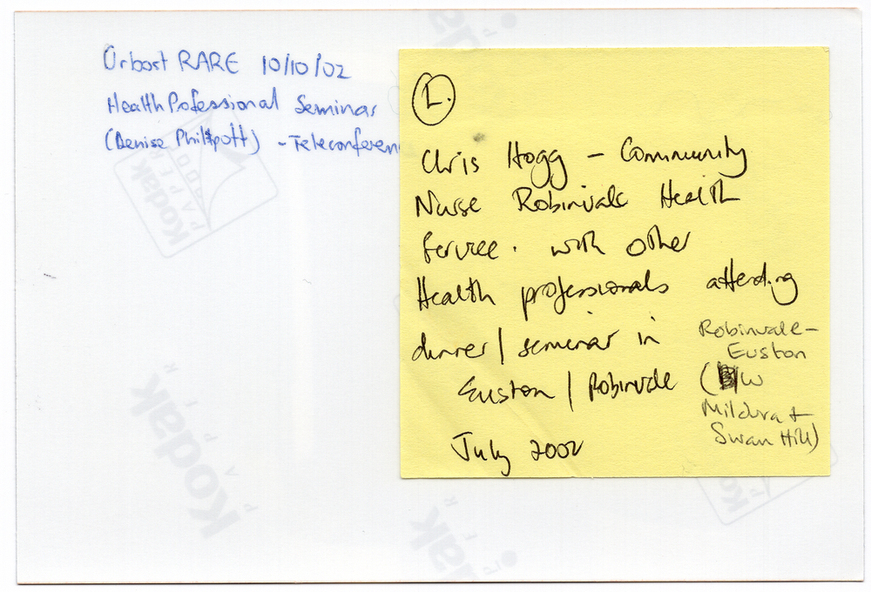 Orbost RARE 10/10/02
Health Professional Seminar
(Denise Philpott) - Teleconferen
1.
Chris Hogg - Community
Nurse Robinvale Health
Service. with other
Health professionals attending
dinner / seminar in
Euston / Robinvale
July 2002
Robinvale-
Euston
(W
Mildura +
Swan Hill)
Kodak
Kodak
Kodak
Kodak